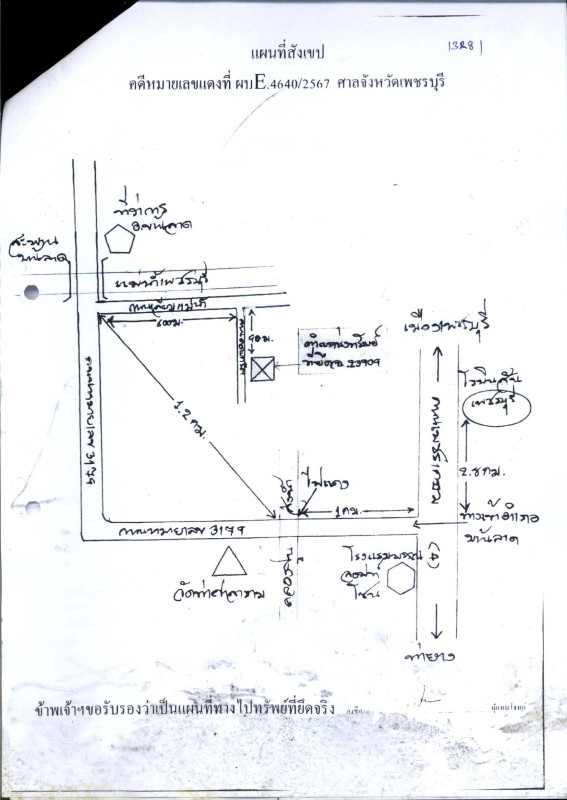 1328
แผนที่สังเขป
คดีหมายเลขแดงที่ ผบE.4640/2567 ศาลจังหวัดเพชรบุรี
ที่ว่าการ
อ.บ้านลาด
สะพาน
บ้านลาด
แม่น้ำเพชรบุรี
ถนนเลียบแม่น้ำ
600ม.
90ม.
ตำแหน่งทรัพย์
ที่ยึดฉ.23909
เมืองเพชรบุรี
โรบินสัน
เพชรบุรี
ถนนหมายเลข 3179
1.2 กม.
ไฟแดง
1 กม.
2.8 กม.
ถนนเพชรเกษม
(4)
ทางเข้าอำเภอ
บ้านลาด
ถนนหมายเลข 3179
วัดท่าศาลาราม
โรงแรมพรรณ
ท่ายาง
ข้าพเจ้าฯขอรับรองว่าเป็นแผนที่ทางไปทรัพย์ที่ยึดจริง ลงชื่อ ผู้แทนโจทก์